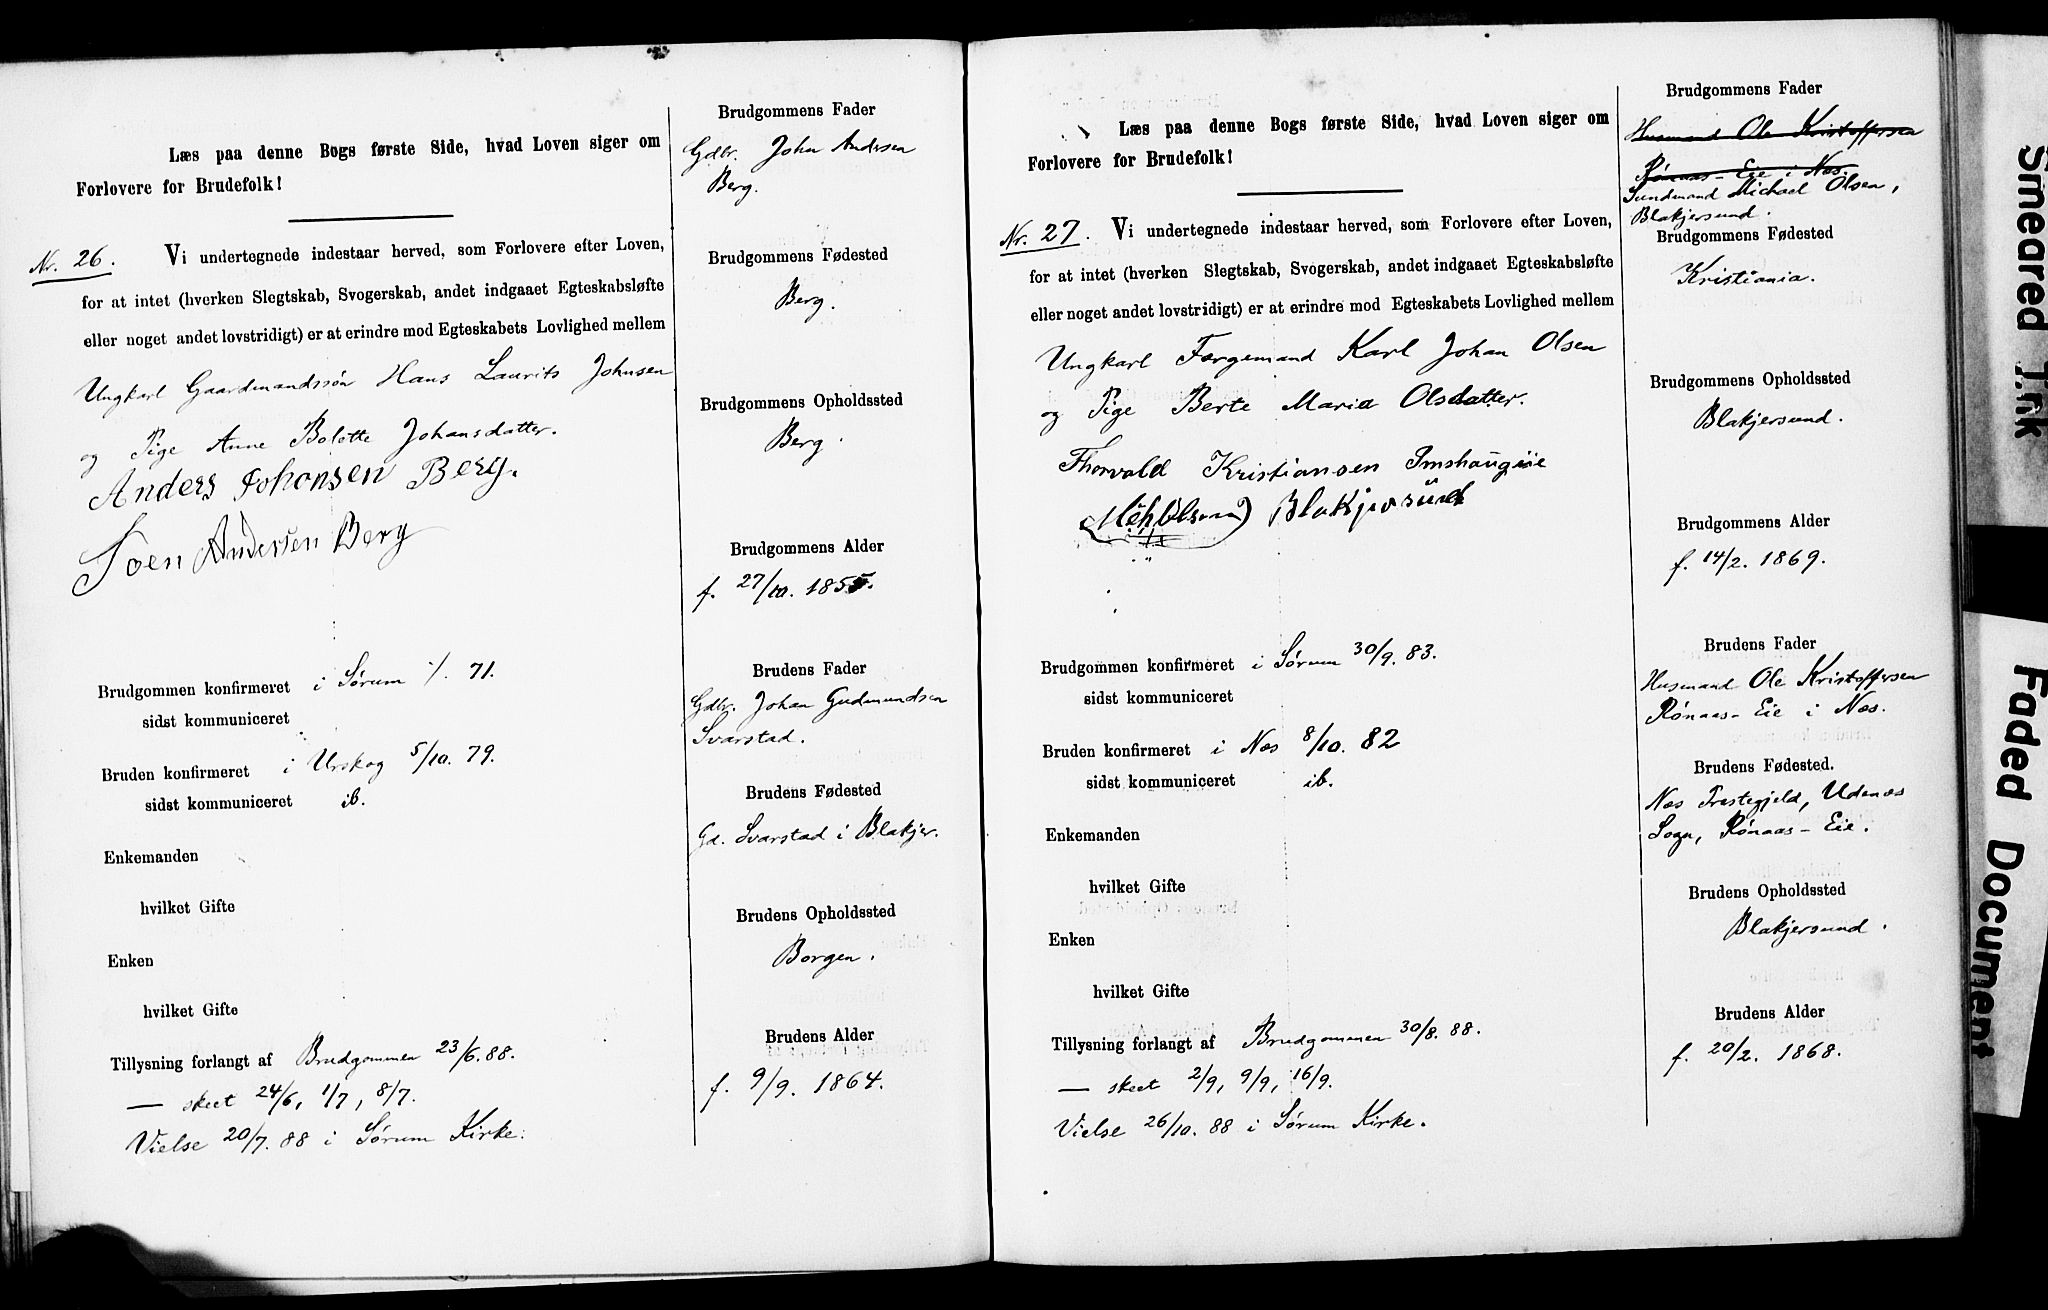 Læs paa denne Bogs første Side, hvad Loven siger om
Forlovere for Brudefolk!
Nr. 26. Vi undertegnede indestaar herved, som Forlovere efter Loven,
for at intet (hverken Slegtskab, Svogerskab, andet indgaaet Egteskabsløfte
eller noget andet lovstridigt) er at erindre mod Egteskabets Lovlighed mellem
Ungkarl Gaardmandssøn Hans Laurits Johnsen
og Pige Anne Bolette Johansdatter.
Anders Johansen Berg.
Andersen Berg
Brudgommen konfirmeret i Sørum 71.
sidst kommuniceret
Bruden konfirmeret i Urskog 5/10. 79.
sidst kommuniceret ib.
Enkemanden
hvilket Gifte
Enken
hvilket Gifte
Tillysning forlangt af Brudgommen 23/6. 88.
— skeet 24/6, 1/7, 8/7.
Vielse 20/7. 88 i Sørum Kirke.
Brudgommens Fader
Gdbr. John Andersen
Berg.
Brudgommens Fødested
Berg.
Brudgommens Opholdssted
Berg.
Brudgommens Alder
f. 27/10. 1855.
Brudens Fader
Gdbr. Johan Gudmundsen
Svarstad.
Brudens Fødested
Gd. Svarstad i Blakjer.
Brudens Opholdssted
Borgen.
Brudens Alder
f. 9/9. 1864.
Læs paa denne Bogs første Side, hvad Loven siger om
Forlovere for Brudefolk!
Nr. 27. Vi undertegnede indestaar herved, som Forlovere efter Loven,
for at intet (hverken Slegtskab, Svogerskab, andet indgaaet Egteskabsløfte
eller noget andet lovstridigt) er at erindre mod Egteskabets Lovlighed mellem
Ungkarl Færgemand Karl Johan Olsen
og Pige Berte Maria Olsdatter.
Thorvald Kristiansen Imshaugeie
Mich Olsen Blakjersund
Brudgommen konfirmeret i Sørum 30/9. 83.
sidst kommuniceret
Bruden konfirmeret i Næs 8/10. 82
sidst kommuniceret ib.
Enkemanden
hvilket Gifte
Enken
hvilket Gifte
Tillysning forlangt af Brudgommen 30/8. 88.
— skeet 2/9, 9/9, 16/9.
Vielse 26/10. 88 i Sørum Kirke.
Brudgommens Fader
Husmand Ole Kristoffersen
Rønaas-Eie i Næs.
Sundmand Michael Olsen,
Blakjersund.
Brudgommens Fødested
Kristiania.
Brudgommens Opholdssted
Blakjersund.
Brudgommens Alder
f. 14/2. 1869.
Brudens Fader
Husmand Ole Kristoffersen
Rønaas-Eie i Næs.
Brudens Fødested.
Næs Prestegjeld, Udenæs
Sogn, Rønaas-Eie.
Brudens Opholdssted
Blakjersund.
Brudens Alder
f. 20/2. 1868.
Smeared Ink
Faded Document